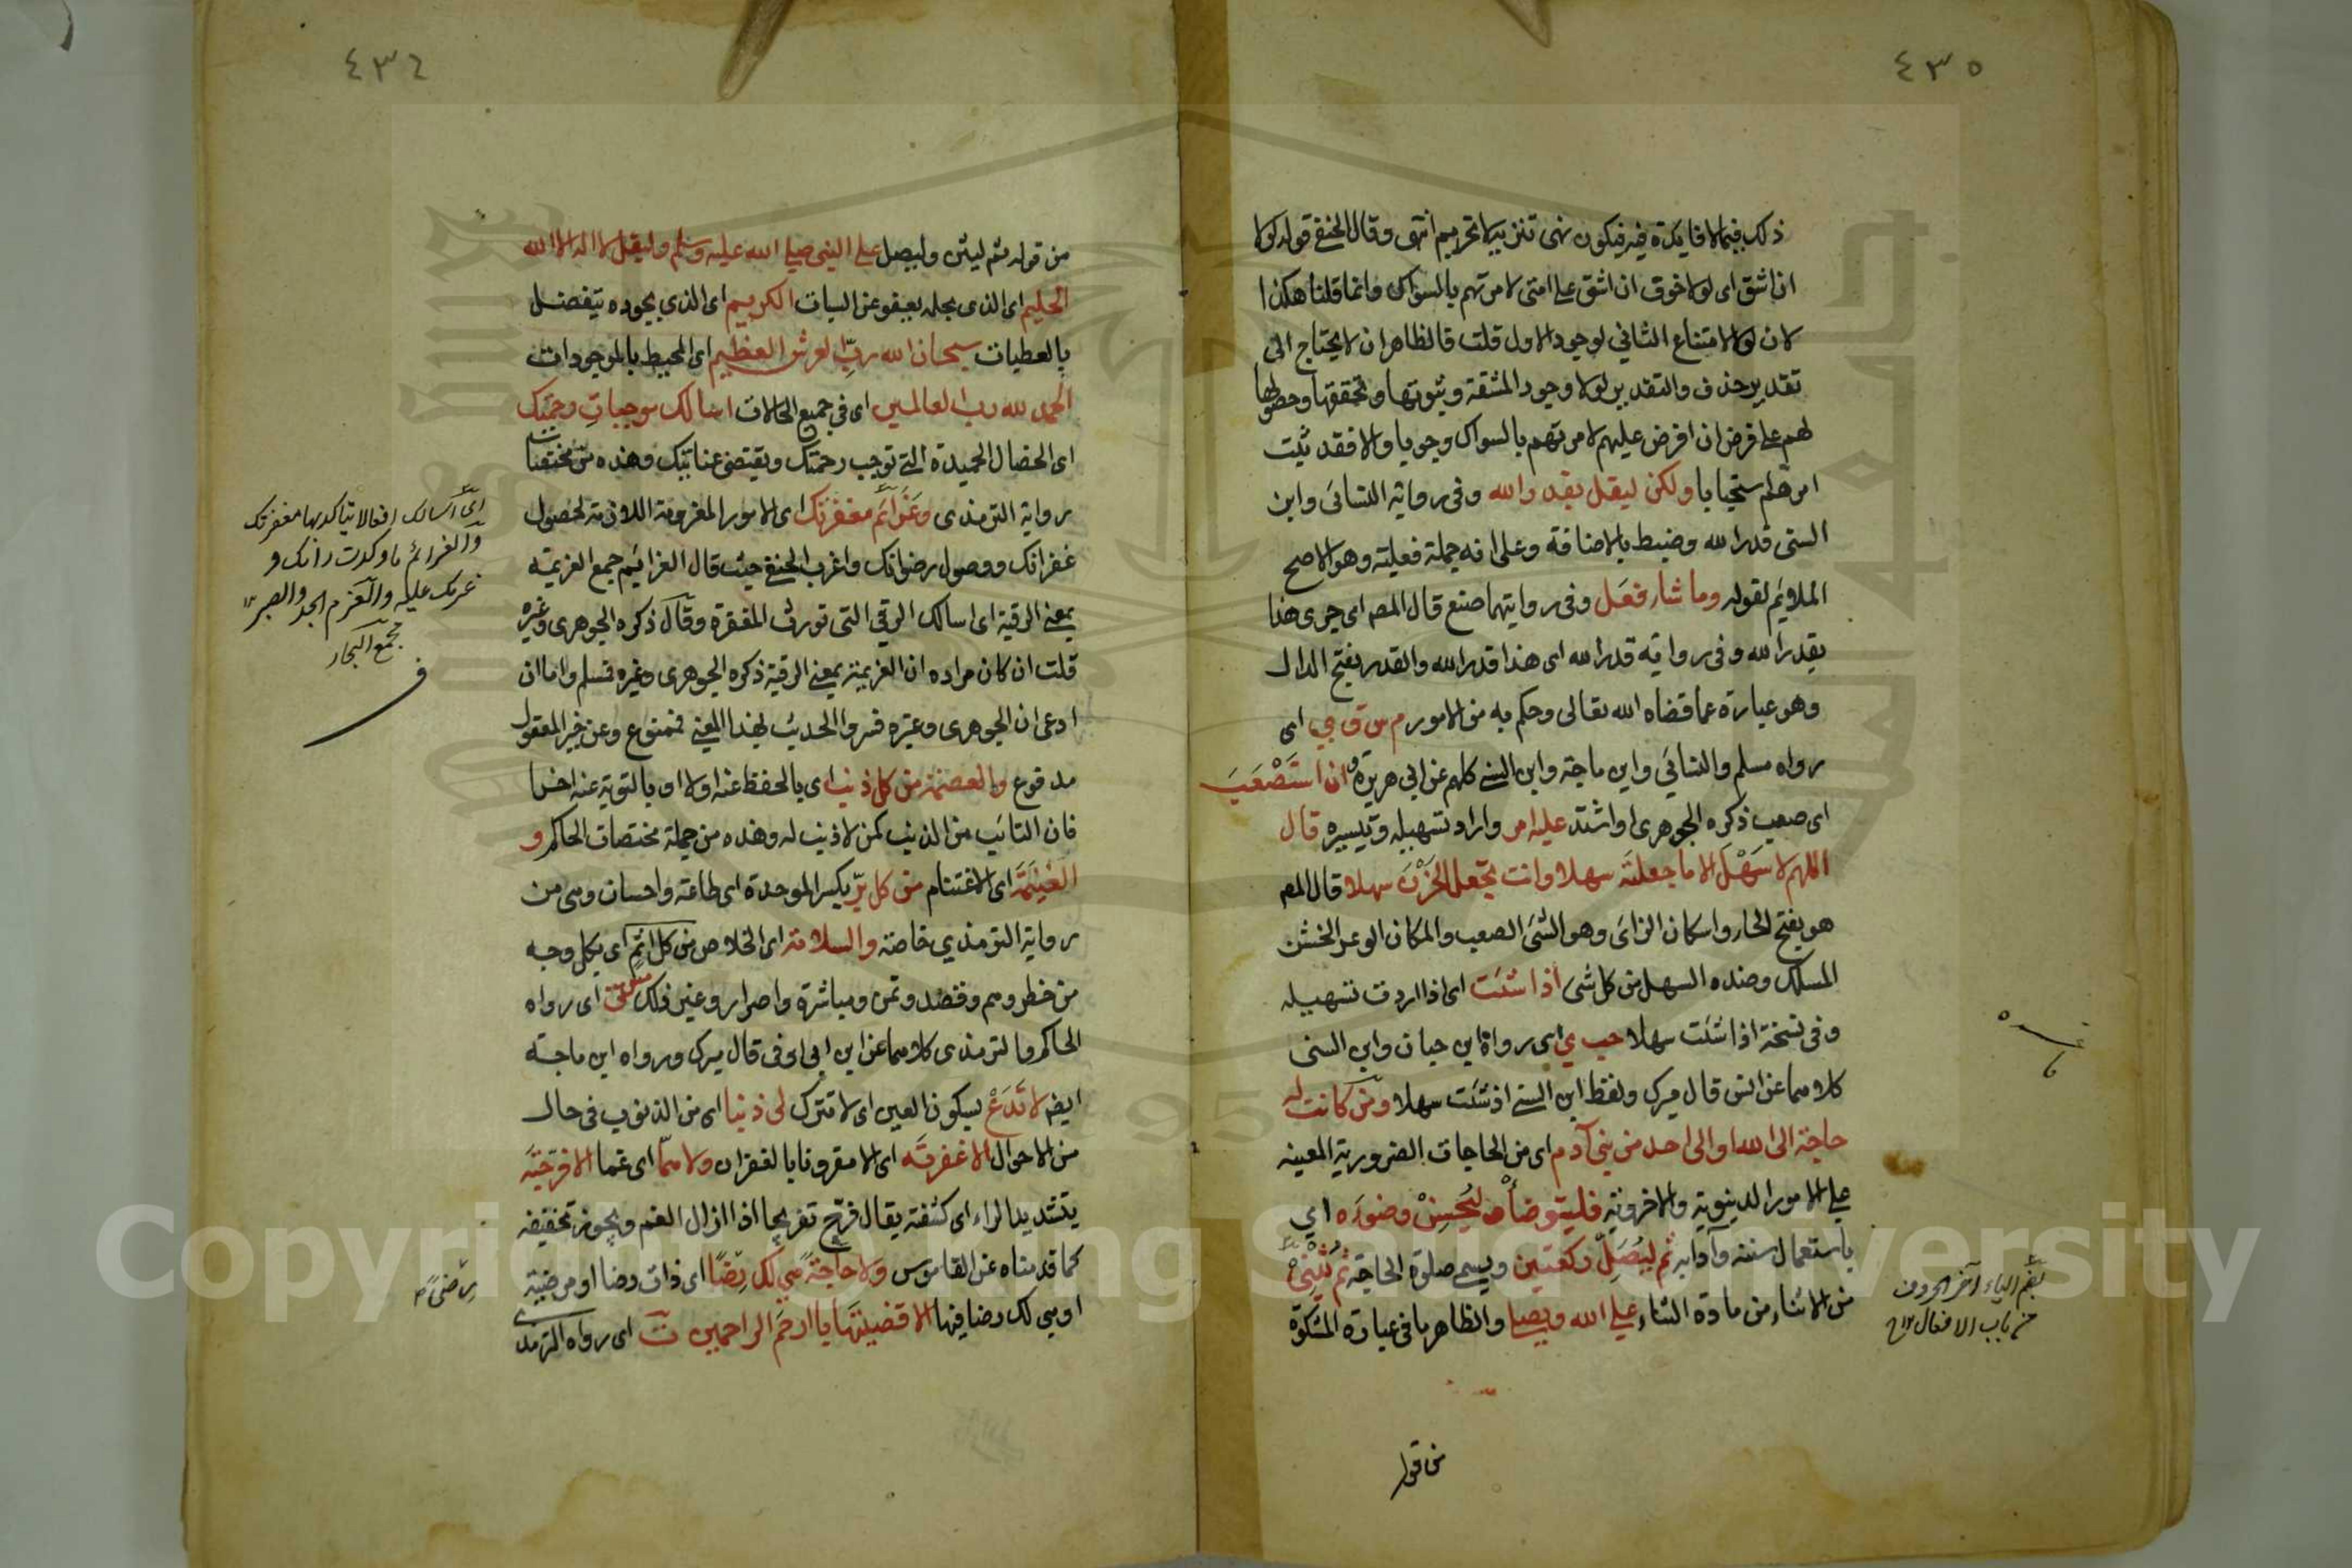 ٤٣٥
ذلك فيما لا فايدة فيه فيكون نهى تنزيه لا تحريم انتهى وقال الحنفي قوله لولا
ان اشق اى لولا خوف ان اشق على امتى لامرتهم بالسواك وانما قلنا هكذا
لان لولا لامتناع الثاني لوجود الاول قلت فالظاهر ان لا يحتاج الى
تقدير حذف والتقدير لولا وجود المشقة وثبوتها وتحققها وحصولها
لهم على فرض ان افرض عليهم لامرتهم بالسواك وجوبا والا فقد ثبت
امرهم استحبابا ولكن ليقل بقدر الله وفى رواية النسائى وابن
السنى قدر الله وضبط بالاضافة وعلى انه جملة فعلية وهو الاصح
الملائم لقوله وما شاء فعل وفى روايتهما صنع قال المص اى جرى هذا
بقدر الله وفى رواية قدر الله اى هذا قدر الله والقدر بفتح الدال
وهو عبارة عما قضاه الله تعالى وحكم به من الامور م س ق ي اى
رواه مسلم والنسائي وابن ماجة وابن السني كلهم عن ابي هريرة وان استصعب
اى صعب ذكره الجوهرى او اشتد عليه امر واراد تسهيله وتيسيره قال
اللهم لا سهل الا ما جعلته سهلا وانت تجعل الحزن سهلا قال المص
هو بفتح الحاء واسكان الزاى وهو الشئ الصعب والمكان الوعر الخشن
المسلك وضده السهل من كل شى اذا شئت اى اذا اردت تسهيله
وفى نسخة اذا شئت سهلا حب ي اى رواه ابن حبان وابن السنى
كلاهما عن انس قال ميرك ولفظ ابن السني اذ شئت سهلا ومن كانت له
حاجة الى الله او الى احد من بني آدم اى من الحاجات الضرورية المعينه
على الامور الدينوية والاخروية فليتوضأ وليحسن وضوءه اي
باستعمال سننه وآدابه ثم ليصل ركعتين ويسمى صلوة الحاجة ثم يثني
من الاثناء من مادة الثناء على الله ويصلي والظاهر ما فى عبارة المشكوة
بضم الياء آخر الحروف
من باب الافعال
من قوله
٤٣٦
من قوله ثم ليثن وليصل على النبى صلى الله عليه وسلم وليقل لا اله الا الله
الحليم اى الذى بحلمه يعفو عن السيات الكريم اى الذي بجوده يتفضل
بالعطيات سبحان الله رب العرش العظيم اى المحيط بالموجودات
الحمد لله رب العالمين اى في جميع الحالات اسالك موجبات رحمتك
اى الخصال الحميدة التي توجب رحمتك ويقتضى عنايتك وهذه من مختصات
رواية الترمذى وعزائم مغفرتك اى الامور المعزومة اللازمة لحصول
غفرانك ووصول رضوانك واغرب الحنفي حيث قال العزائم جمع العزيمة
بمعنى الرقية اى اسالك الرقي التى تورث المغفرة وقال ذكره الجوهرى وغيره
قلت ان كان مراده ان العزيمة بمعنى الرقية ذكره الجوهرى وغيره فسلم واما ان
ادعى ان الجوهرى وغيره فسروا الحديث بهذا المعنى فممنوع وعن خير المعقول
مدفوع والعصمة من كل ذنب اى بالحفظ عنه اولا او بالتوبة عنه اخرا
فان التائب من الذنب كمن لا ذنب له وهذه من جملة مختصات الحاكم و
الغنيمة اى الاغتنام من كل بر بكسر الموحدة اى طاعة واحسان وهى من
رواية الترمذي خاصة والسلامة اى الخلاص من كل اثم اى بكل وجه
من خطر وهم وقصد وتمن ومباشرة واصرار وغير ذلك مس ت اى رواه
الحاكم والترمذى كلاهما عن ابن ابي اوفى قال ميرك ورواه ابن ماجة
ايضا لا تدع بسكون العين اى لا تترك لى ذنبا اى من الذنوب فى حال
من الاحوال الا غفرته اى الا مقرونا بالغفران ولا هما اى غما الا فرجته
بتشديد الراء اى كشفته يقال فرج تفريجا اذا ازال الغم ويجوز تخفيفه
كما قدمناه عن القاموس ولا حاجة هي لك رضا اى ذات رضا او مرضية
او هى لك رضا فيها الا قضيتها يا ارحم الراحمين ت اى رواه الترمذى
اى اسالك افعالا يتاكد بها مغفرتك
والعزائم ما وكدت رأيك و
عزمك عليه والعزم الجد والصبر
مجمع البحار
Copyright © King Saud University